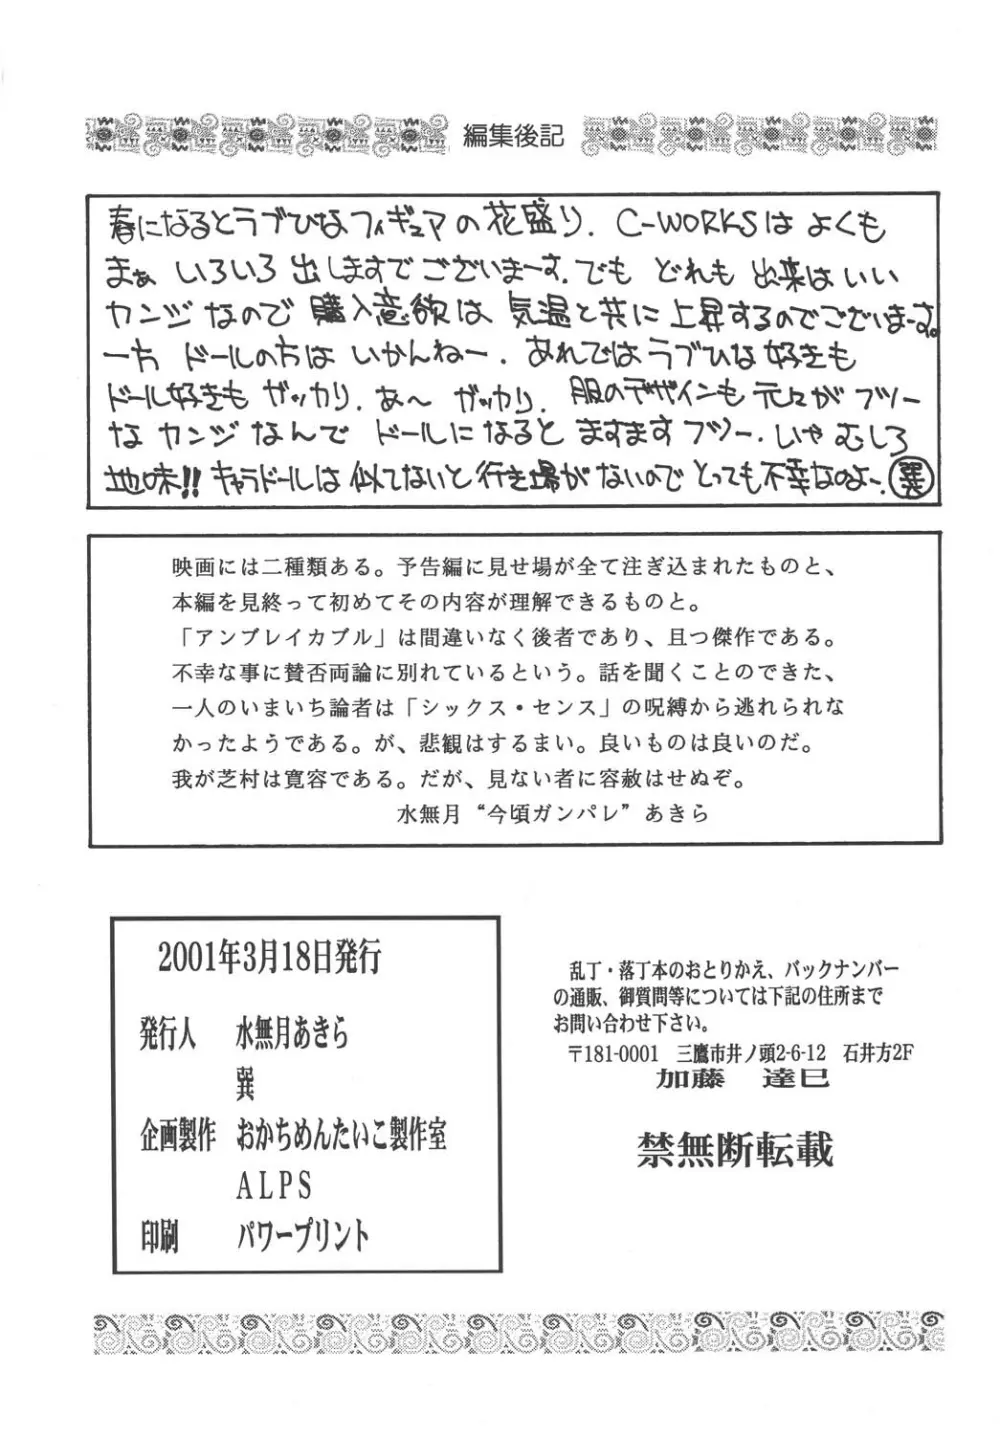 編集後記
春になるとラブひなフィギュアの花盛り. C-WORKSは よくも
まぁ いろいろ 出しますでございまーす. でも どれも 出来はいい
カンジなので 購入意欲は 気温と共に上昇するのでございまーす。
一方 ドールの方は いかんねー. あれではラブひな好きも
ドール好きも ガッカリ. あ〜 ガッカリ. 服のデザインも 元々がフツー
な カンジなんで ドールになると ますますフツー. いや むしろ
地味!! キャラドールは 似てないと 行き場がないので とっても不幸なのよー. 巽
映画には二種類ある。予告編に見せ場が全て注ぎ込まれたものと、
本編を見終って初めてその内容が理解できるものと。
「アンブレイカブル」は間違いなく後者であり、且つ傑作である。
不幸な事に賛否両論に別れているという。話を聞くことのできた、
一人のいまいち論者は「シックス・センス」の呪縛から逃れられな
かったようである。が、悲観はするまい。良いものは良いのだ。
我が芝村は寛容である。だが、見ない者に容赦はせぬぞ。
水無月 “今頃ガンパレ” あきら
2001年3月18日発行
発行人 水無月あきら
巽
企画製作 おかちめんたいこ製作室
ALPS
印刷 パワープリント
乱丁・落丁本のおとりかえ、バックナンバー
の通販、御質問等については下記の住所まで
お問い合わせ下さい。
〒181-0001 三鷹市井ノ頭2-6-12 石井方2F
加藤 達巳
禁無断転載